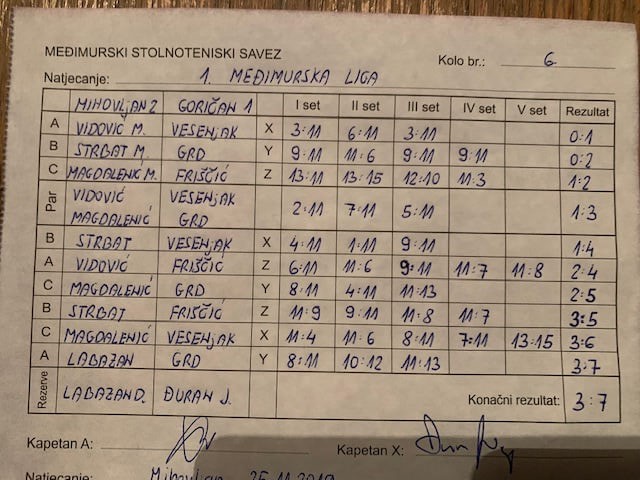 MEĐIMURSKI STOLNOTENISKI SAVEZ Kolo br.: 6
Natjecanje: 1. MEĐIMURSKA LIGA
MIHOVLJAN 2 GORIČAN 1 I set II set III set IV set V set Rezultat
A VIDOVIĆ M. VESENJAK X 3:11 6:11 3:11 0:1
B ŠTRBAT M. GRD Y 9:11 11:6 9:11 9:11 0:2
C MAGDALENIĆ M. FRIŠČIĆ Z 13:11 13:15 12:10 11:3 1:2
Par VIDOVIĆ VESENJAK
MAGDALENIĆ GRD 2:11 7:11 5:11 1:3
B STRBAT VESENJAK X 4:11 1:11 9:11 1:4
A VIDOVIĆ FRIŠČIĆ Z 6:11 11:6 9:11 11:7 11:8 2:4
C MAGDALENIĆ GRD Y 8:11 4:11 11:13 2:5
B STRBAT FRIŠČIĆ Z 11:9 9:11 11:8 11:7 3:5
C MAGDALENIĆ VESENJAK X 11:4 11:6 8:11 7:11 13:15 3:6
A LABAZAN GRD Y 8:11 10:12 11:13 3:7
Rezerve LABAZAN D. ĐURAN J. Konačni rezultat: 3:7
Kapetan A: Kapetan X:
Natjecanje: Mihovljan 25.11.2019